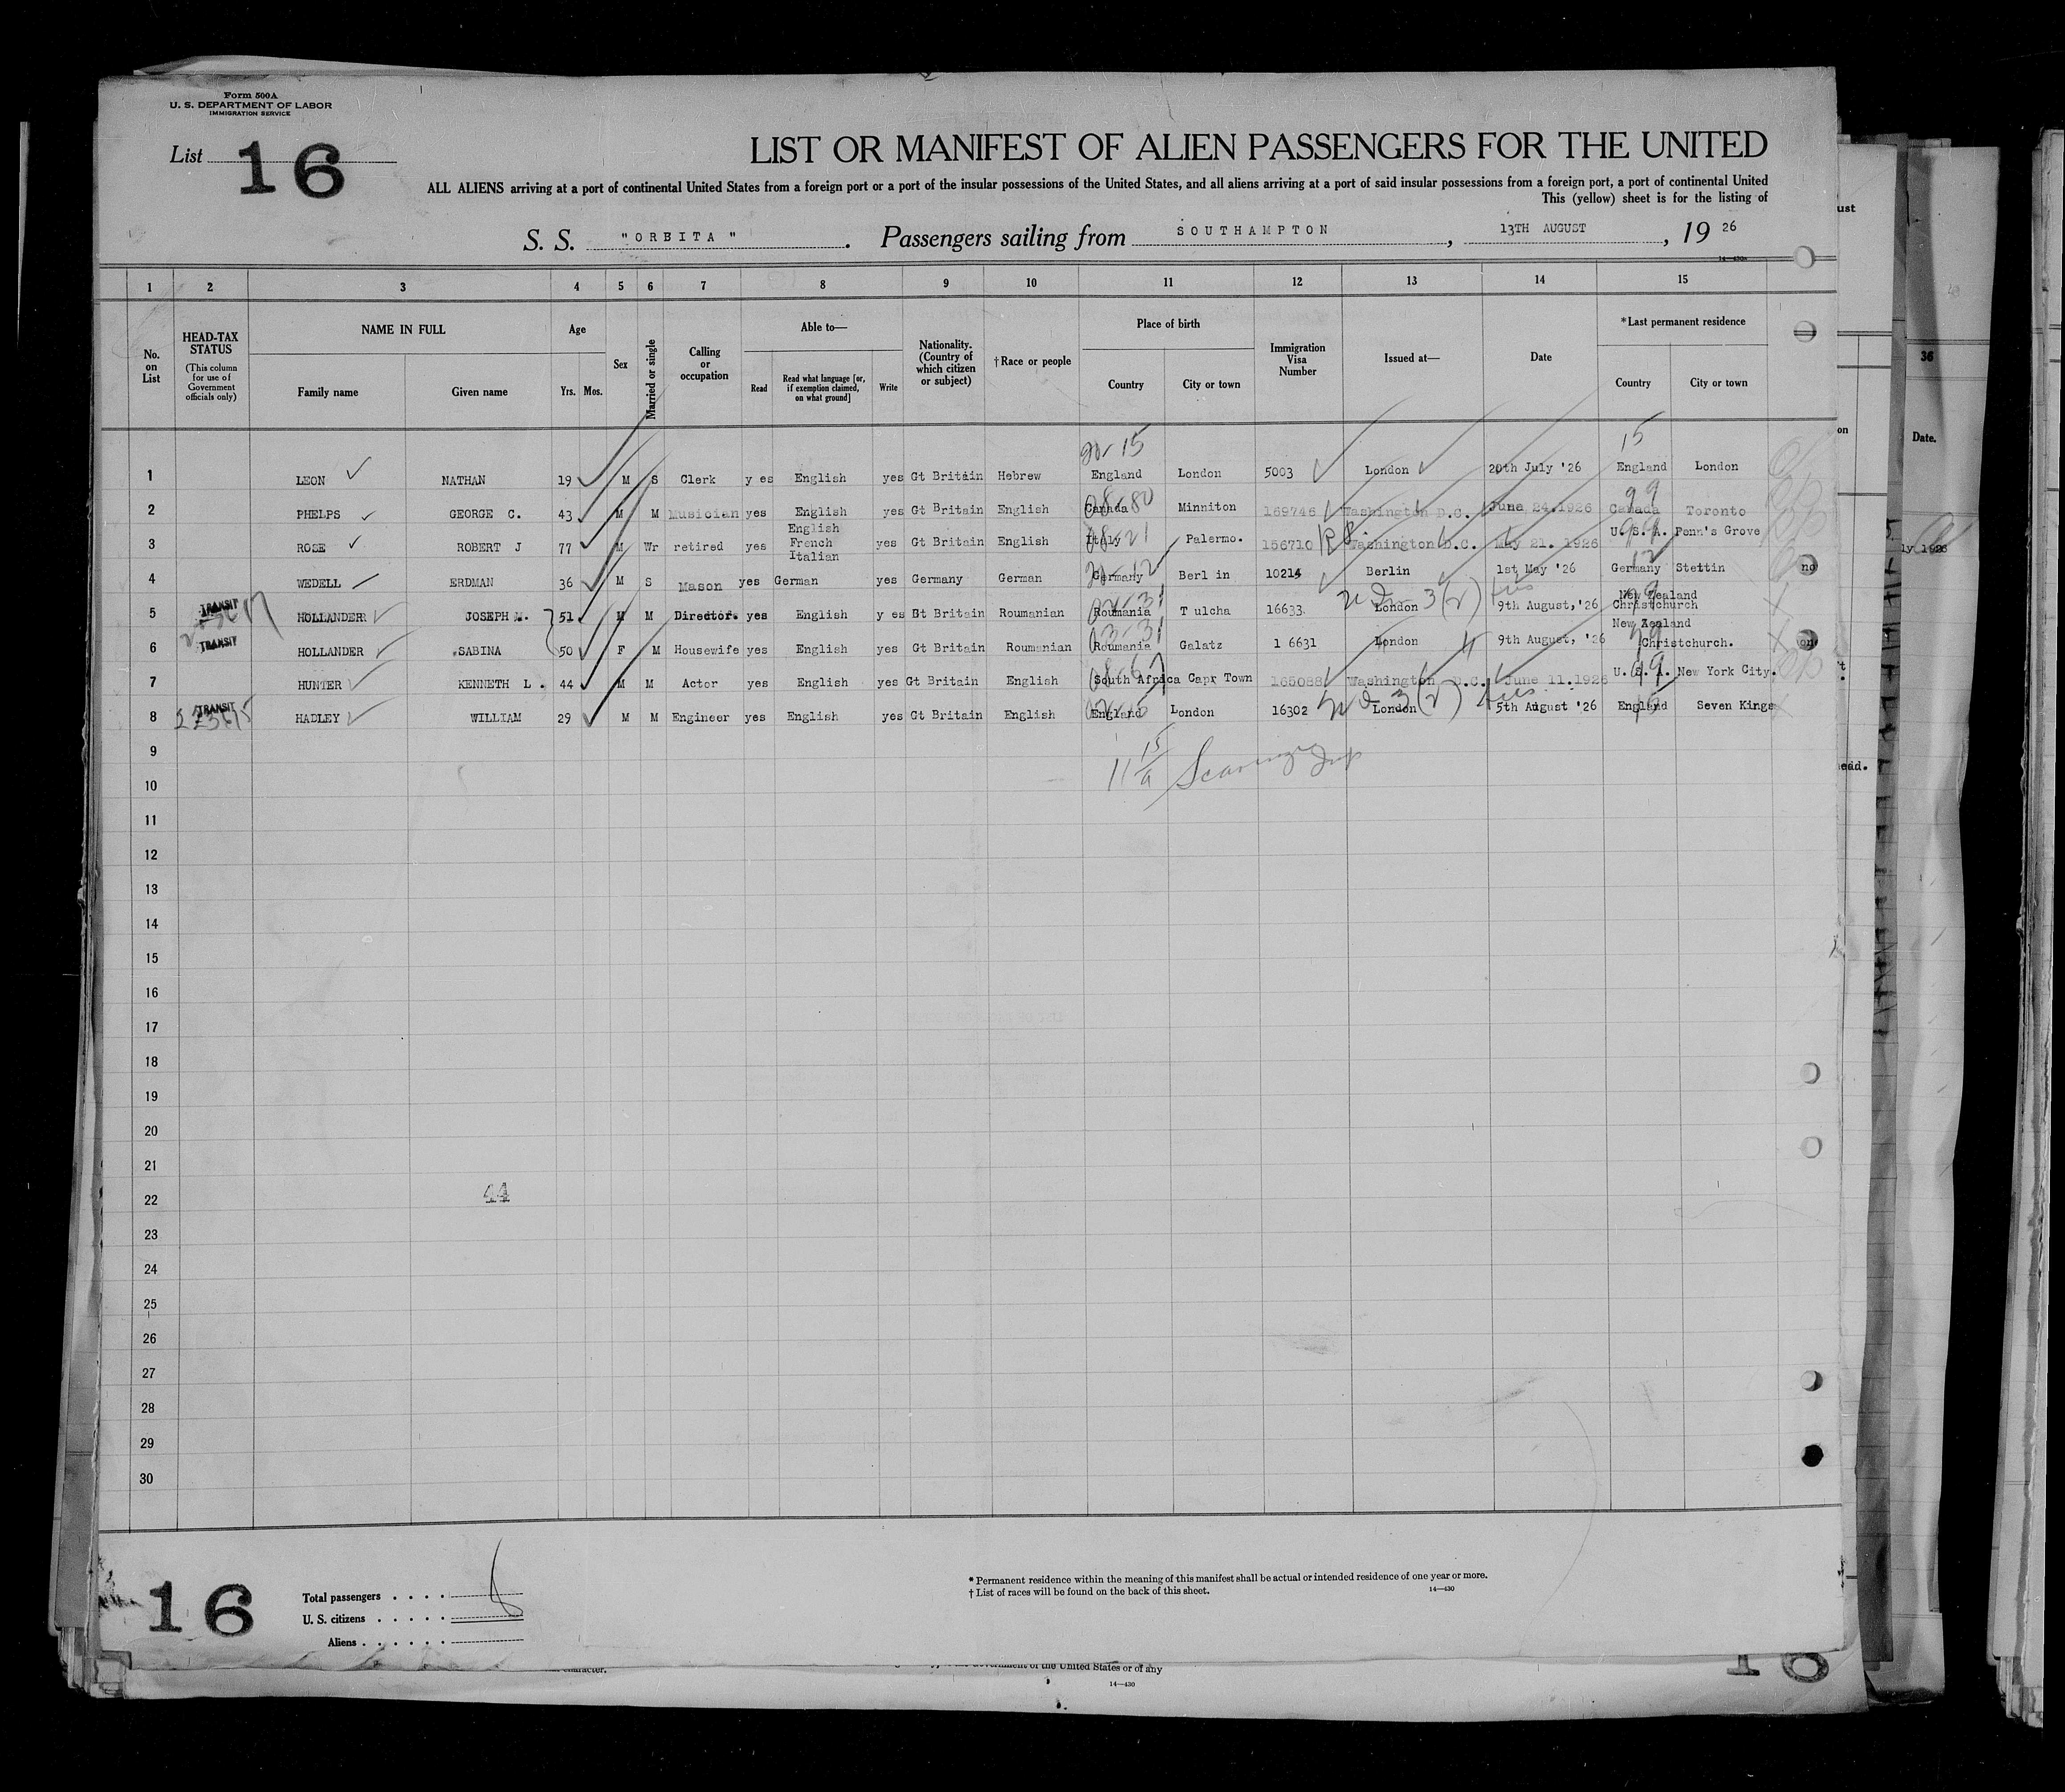 Form 500A
U. S. DEPARTMENT OF LABOR
IMMIGRATION SERVICE
List 16
LIST OR MANIFEST OF ALIEN PASSENGERS FOR THE UNITED
ALL ALIENS arriving at a port of continental United States from a foreign port or a port of the insular possessions of the United States, and all aliens arriving at a port of said insular possessions from a foreign port, a port of continental United
This (yellow) sheet is for the listing of
S. S. "ORBITA". Passengers sailing from SOUTHAMPTON, 13TH AUGUST, 19 26
1 2 3 4 5 6 7 8 9 10 11 12 13 14 15
No. on List
HEAD-TAX STATUS (This column for use of Government officials only)
NAME IN FULL
Family name Given name
Age
Yrs. Mos.
Sex
Married or single
Calling or occupation
Able to—
Read
Read what language [or, if exemption claimed, on what ground]
Write
Nationality. (Country of which citizen or subject)
†Race or people
Place of birth
Country City or town
Immigration Visa Number
Issued at—
Date
*Last permanent residence
Country City or town
15 15
1 LEON NATHAN 19 M S Clerk y es English yes Gt Britain Hebrew England London 5003 London 20th July '26 England London
2 PHELPS GEORGE C. 43 M M Musician yes English yes Gt Britain English Canada Minniton 169746 Washington D.C. June 24.1926 Canada Toronto
3 ROSE ROBERT J 77 M Wr retired yes English French Italian yes Gt Britain English Italy Palermo. 156710 Washington D.C. May 21. 1926 U.S.A. Penn's Grove
4 WEDELL ERDMAN 36 M S Mason yes German yes Germany German Germany Berl in 10214 Berlin 1st May '26 Germany Stettin no
5 TRANSIT HOLLANDER JOSEPH M. 51 M M Director. yes English y es Gt Britain Roumanian Roumania T ulcha 16633 London 3(2) 9th August,'26 New Zealand Christchurch
6 TRANSIT HOLLANDER SABINA 50 F M Housewife yes English yes Gt Britain Roumanian Roumania Galatz 1 6631 London 9th August, '26 New Zealand Christchurch. on
7 HUNTER KENNETH L. 44 M M Actor yes English yes Gt Britain English South Africa Capr Town 165088 Washington D.C. June 11.1926 U.S.A. New York City.
8 TRANSIT HADLEY WILLIAM 29 M M Engineer yes English yes Gt Britain English England London 16302 London 3(2) 5th August '26 England Seven Kings
9
10
11
12
13
14
15
16
17
18
19
20
21
22
44
23
24
25
26
27
28
29
30
16
Total passengers
U. S. citizens
Aliens
* Permanent residence within the meaning of this manifest shall be actual or intended residence of one year or more.
† List of races will be found on the back of this sheet.
14—430
character.
Government of the United States or of any
14—430
16
ust
36
on
Date.
ly 1926
ead.